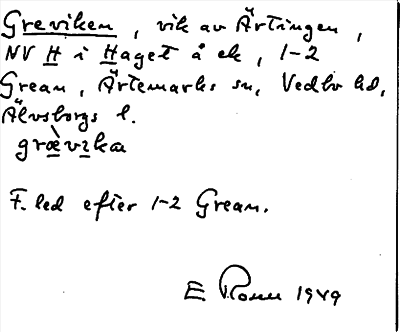 Greviken, vik av Ärtingen,
NV H i Haget å ek, 1-2
Grean, Ärtemarks sn, Vedbo hd,
Älvsborgs l.
græ̀vıka
F. led efter 1-2 Grean.
E 1949